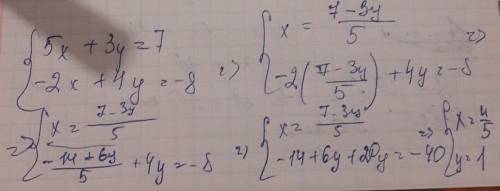 { 5x + 3y = 7
-2x + 4y = -8 =>
{ x = (7-3y)/5
-2((7-3y)/5) + 4y = -8 =>
=> { x = (7-3y)/5
(-14+6y)/5 + 4y = -8 =>
{ x = (7-3y)/5
-14+6y+20y = -40 =>
{ x = 4/5
y = 1